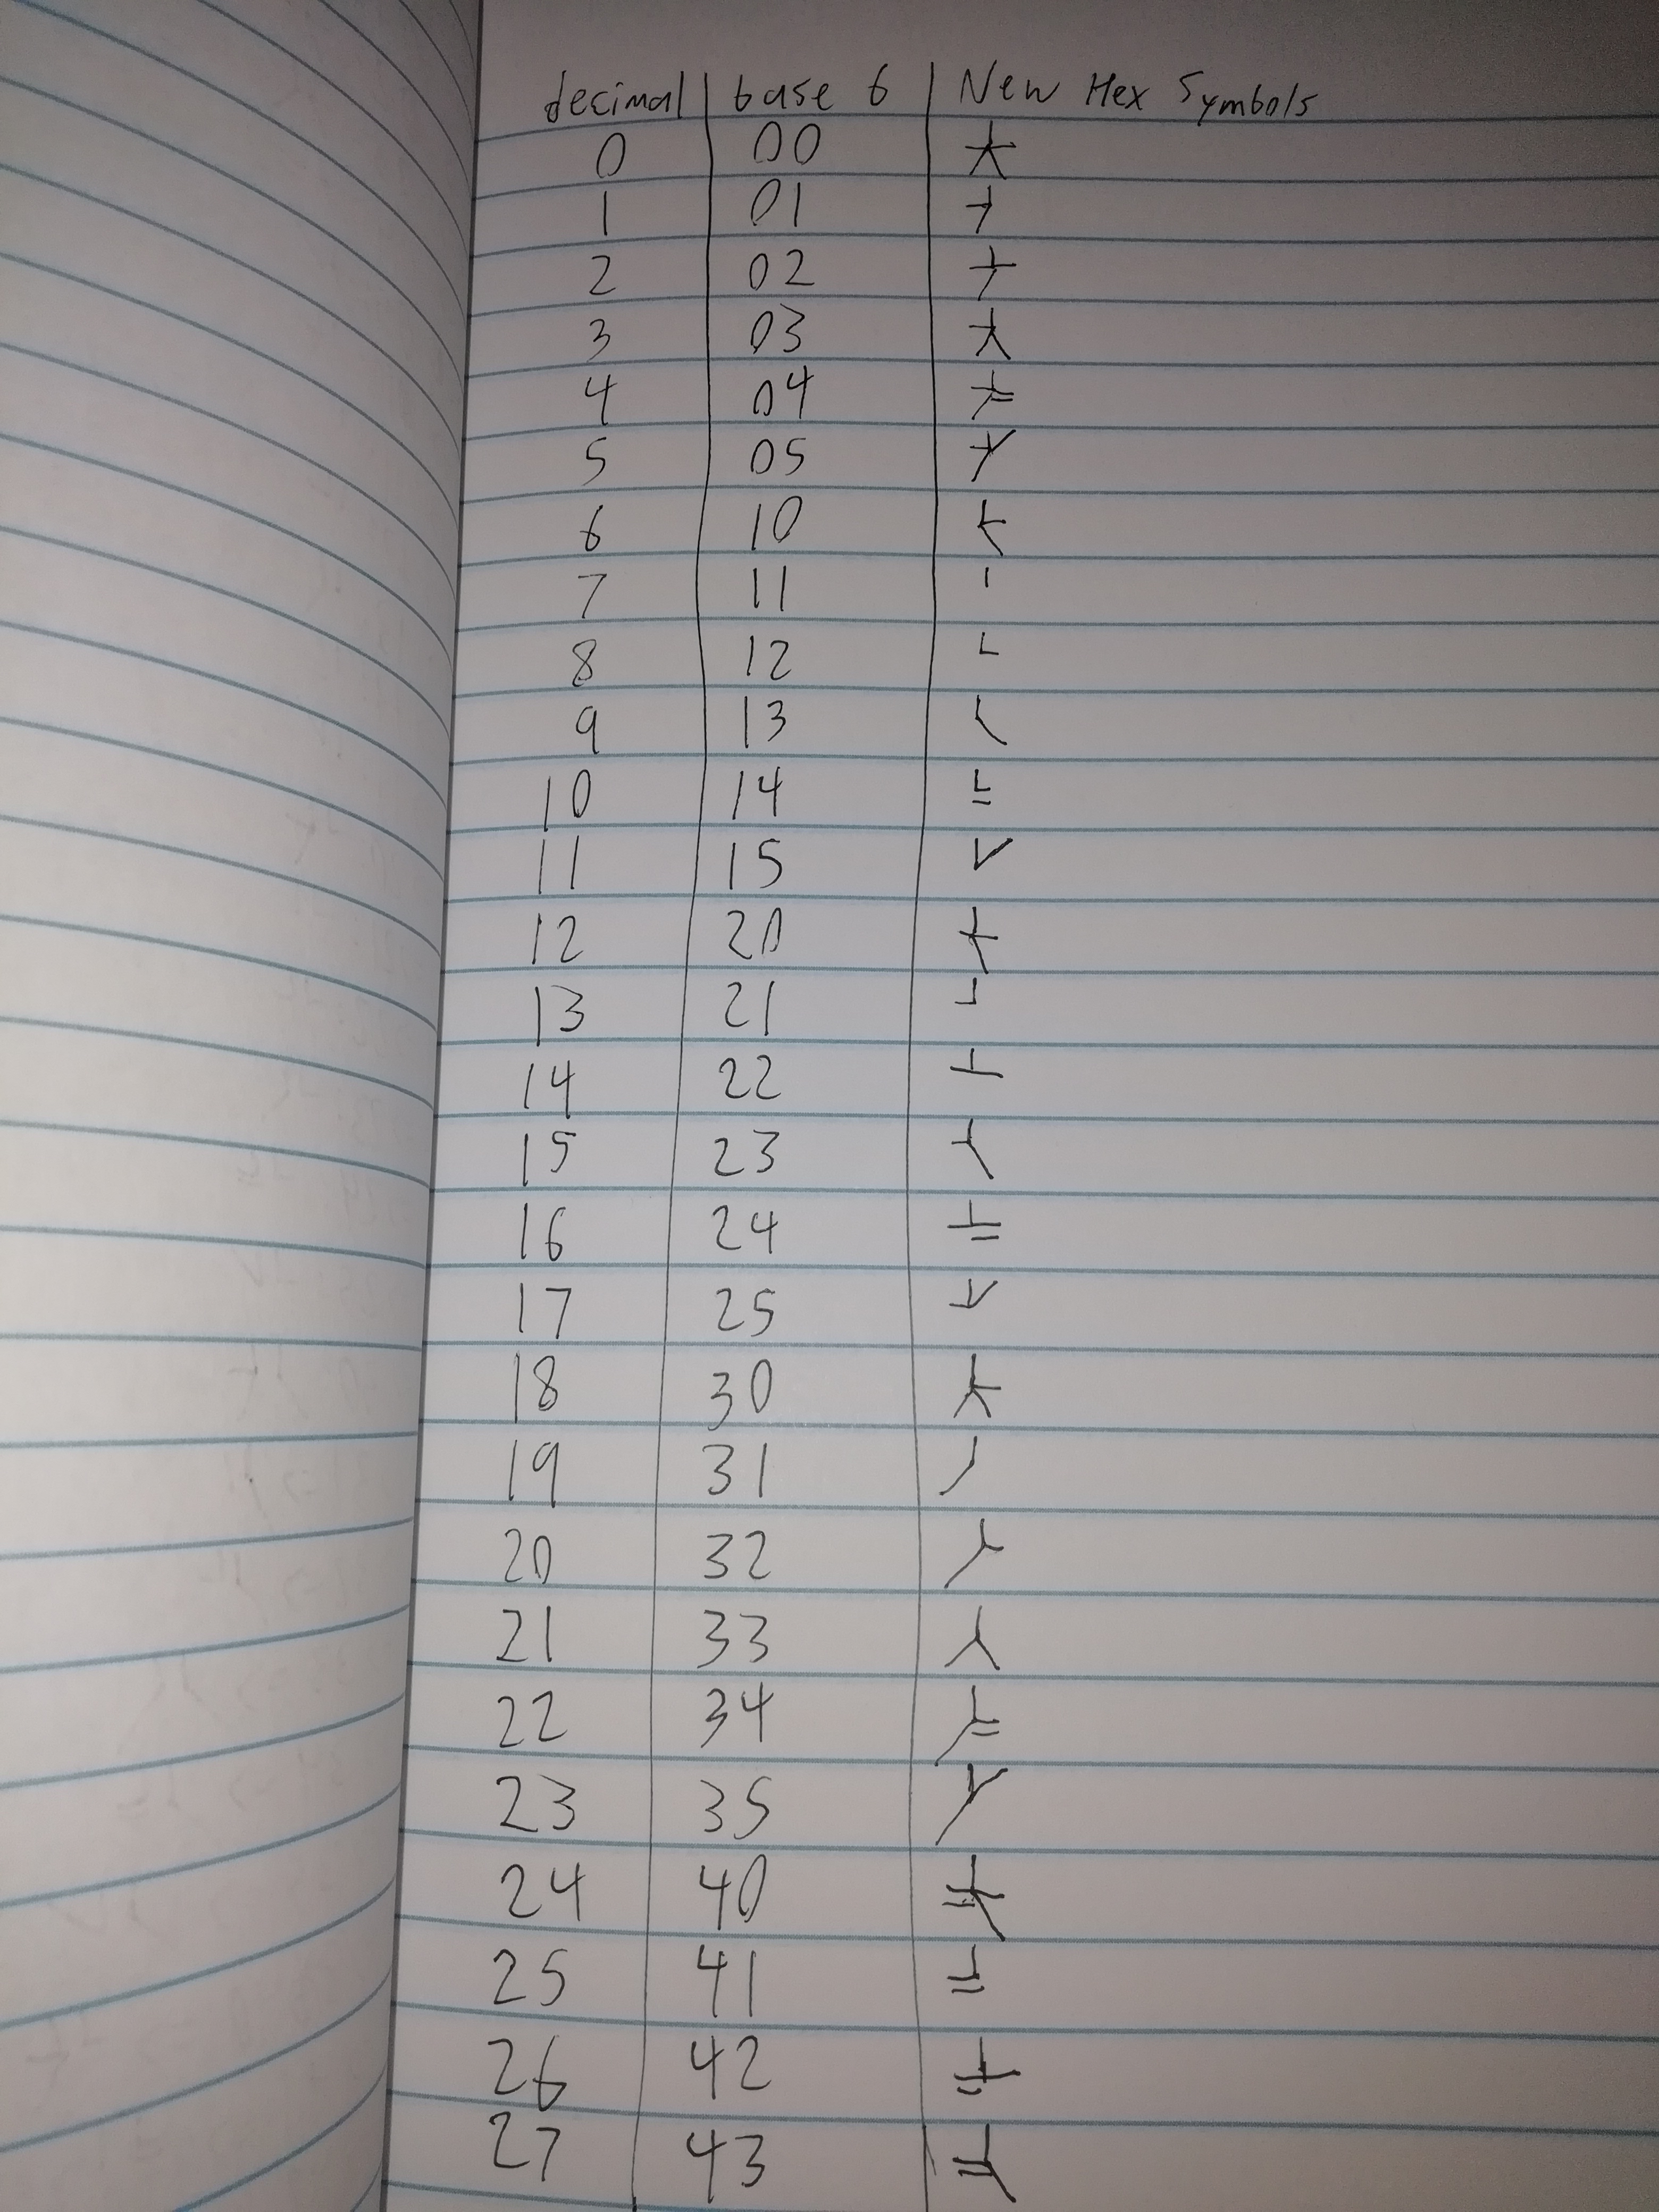 decimal | base 6 | New Hex Symbols
0 00
1 01
2 02
3 03
4 04
5 05
6 10
7 11
8 12
9 13
10 14
11 15
12 20
13 21
14 22
15 23
16 24
17 25
18 30
19 31
20 32
21 33
22 34
23 35
24 40
25 41
26 42
27 43